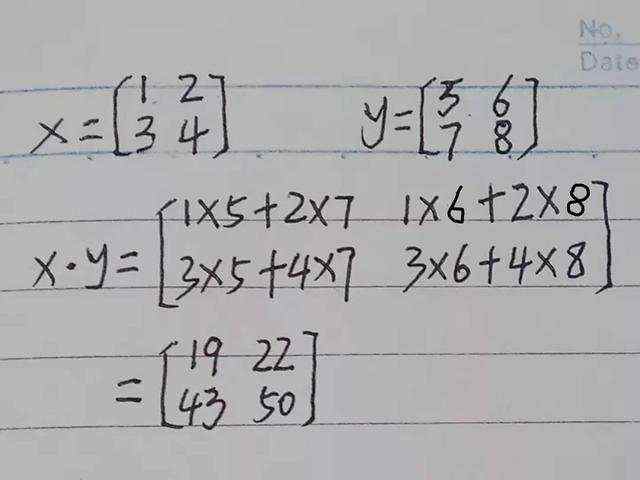 No.
Date
x = [1 2
3 4]
y = [5 6
7 8]
x · y = [1×5+2×7 1×6+2×8
3×5+4×7 3×6+4×8]
= [19 22
43 50]